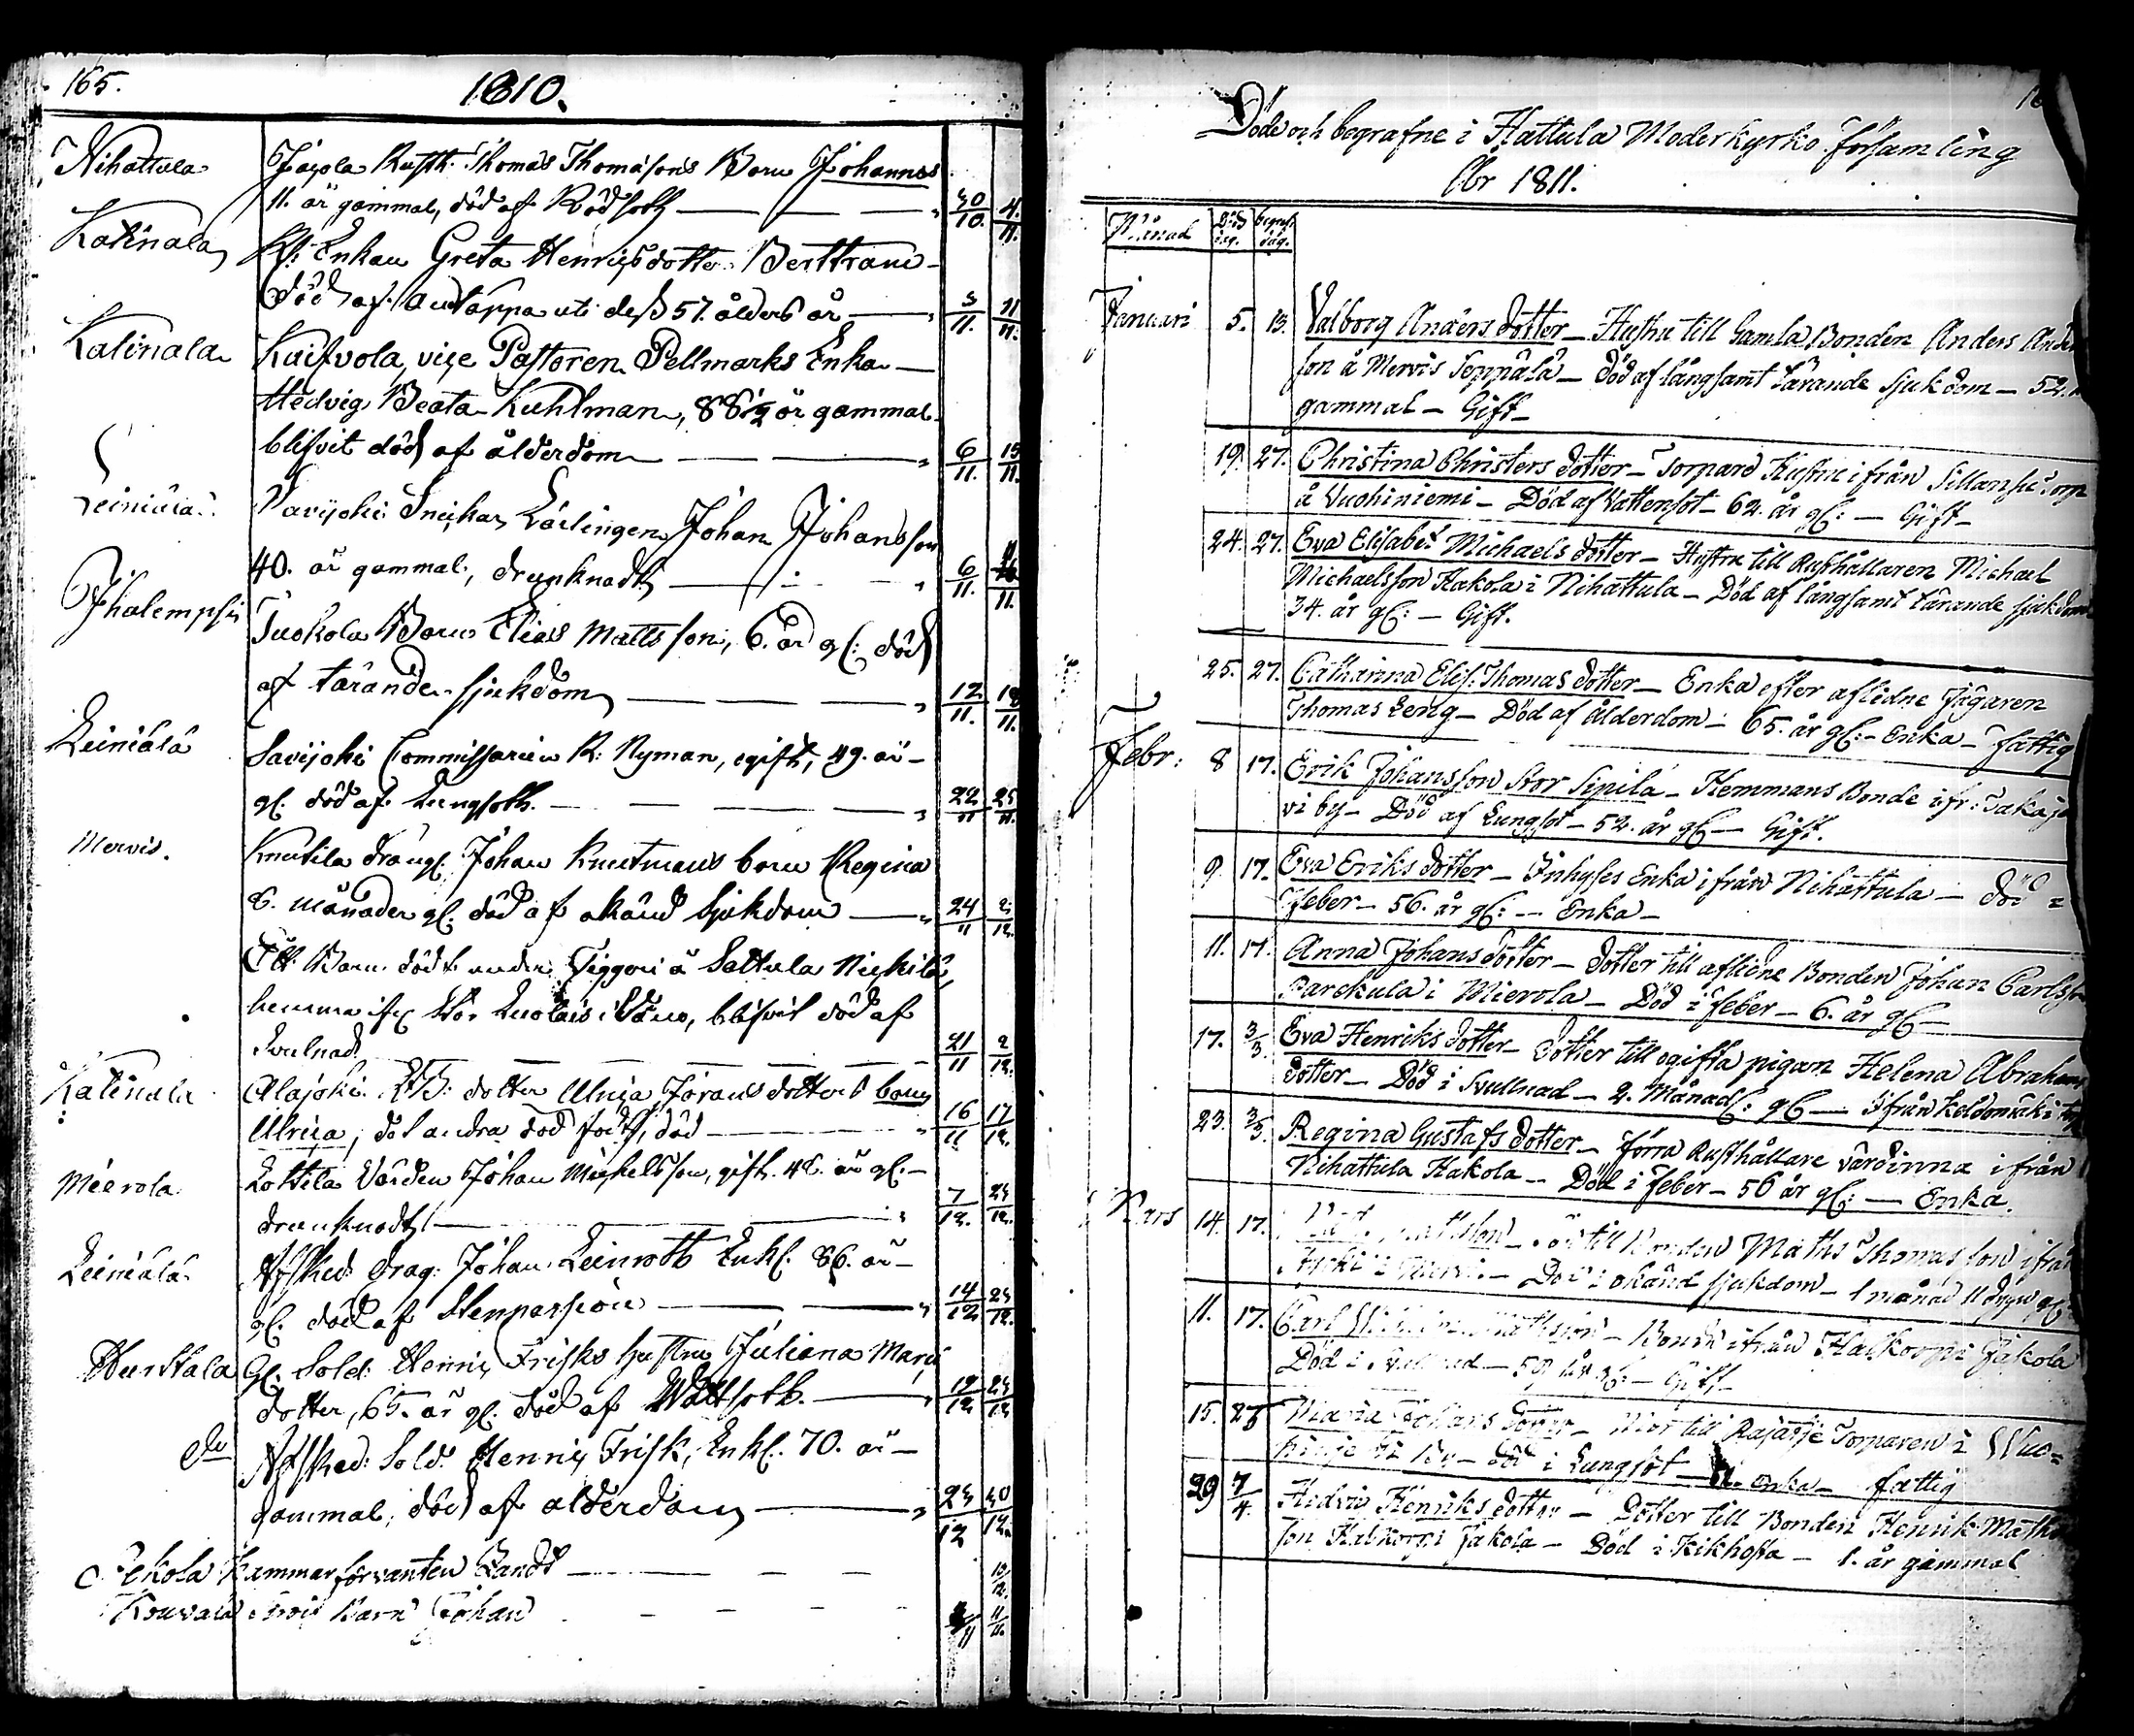 165.
1810.
Nihattula
Jäjola Rusth. Thomas Thomæsons Barn Johannes
11. år gammal, död af Rödsoth 30/10. 4/11.
Katinala
Enkan Greta Henricsdotter Berttram
död af andtäppa uti dess 57. ålders år 5/11. 11/11.
Katinala
Kaifvola, vice Pastoren Pellmarks Enka
Hedvig Beata Kuhlman, 88 1/2 år gammal
blifvit död af ålderdom 6/11. 15/11.
Leiniälä
Savijoki Snickar Lärlingen Johan Johansson
40. år gammal, drunknadt 6/11. 11.
Ihalempsi
Tuokola Barn Elias Mattsson, 6. år gl: död
af tärande sjukdom 12/11. 18/11.
Leiniälä
Savijoki Commissarien R: Nyman, ogift, 49. år
gl. död af Lungsoth. 22/11 25/11.
Mervis.
Knutila dräng: Johan Knutmans barn Regina
6. månader gl. död af okänd sjukdom 24/11 2/12.
Ett Barn dödt under Tiggeri å Sattula Nickilä,
hemma blifvit död af
Svulnad 21/11 2/12.
Katinala
Alajoki dotter Ulrica Jörans dotters barn
Ulrica, det andra död född, död 16/11 17/12.
Mierola
Lottila Värden Johan Michelsson, gift. 48. år gl.
drunknadt 7/12. 25/12.
Leiniälä
Afsked. Drag: Johan Leinroth Enkl. 86. år
gl. död af Stempassion 14/12 25/12.
Hurttala
gl. Sold: Henric Frisks hustru Juliana Marci
dotter, 65. år gl. död af Wattsoth. 19/12 25/12
do
Afsked: Sold. Henric Frisk, Enkl. 70. år
gammal, död af ålderdom 25/12 30/12.
Pekola Kammarförvanten Landt 12.
Barn Johan 11 11/11.
Döde och begrafne i Hattula Moderkyrko församling
åhr 1811.
Månad Död dag. begraf: dag.
Januari 5. 13. Valborg Anders dotter — Hustru till Gamla Bonden Anders Anders
son å Mervis Seppälä — Död af långsamt tärande sjukdom — 52.
gammal — Gift —
19. 27. Christina Christers dotter — Torpare Hustru ifrån Sillansu Torp
å Vuohiniemi — Död af Vattensot — 62. år gl: — Gift —
24. 27. Eva Elisabet Michaels dotter — Hustru till Rusthållaren Michael
Michaelsson Hakola i Nihattula — Död af långsamt tärande sjukdom
34. år gl: — Gift.
25. 27. Catharina Elis: Thomas dotter — Enka efter aflidne Jägaren
Thomas Leng — Död af ålderdom — 65. år gl: — Enka — fattig
Febr: 8 17. Erik Johansson Stor Sipilä — Hemmans Bonde ifr: Takajä
vi by — Död af Lungsot — 52. år gl — Gift.
9. 17. Eva Eriks dotter — Inhyses Enka ifrån Nihattula — död
feber — 56. år gl: — Enka —
11. 17. Anna Johans dotter — dotter till aflidne Bonden Johan Carlsson
Parckula i Mierola — Död i feber — 6. år gl —
17. 3/3. Eva Henriks dotter — dotter till ogifta pigan Helena Abrahams
dotter — Död i Svullnad — 2. Månad: gl — ifrån
23. 3/3. Regina Gustafs dotter — förra Rusthållare värdinna ifrån
Nihattula Hakola — Död i feber — 56 år gl: — Enka.
Mars 14. 17. till Bonden Maths Thomasson ifrån
Död i okänd sjukdom — 1 månad 11 dygn gl:
11. 17. Carl Mathsson — Bonde ifrån Halkorpi Jakola
Död i Svullnad — 59 år gl: — Gift —
15. Maria Johans dotter — Mor till Rajasjö Torparen i Wuo=
By — död i Lungsot — Enka — fattig
29 7/4. Hedvig Henriks dotter — Dotter till Bonden Henrik Maths
son Halkorpi Jakola — Död i Kikhosta — 1. år gammal